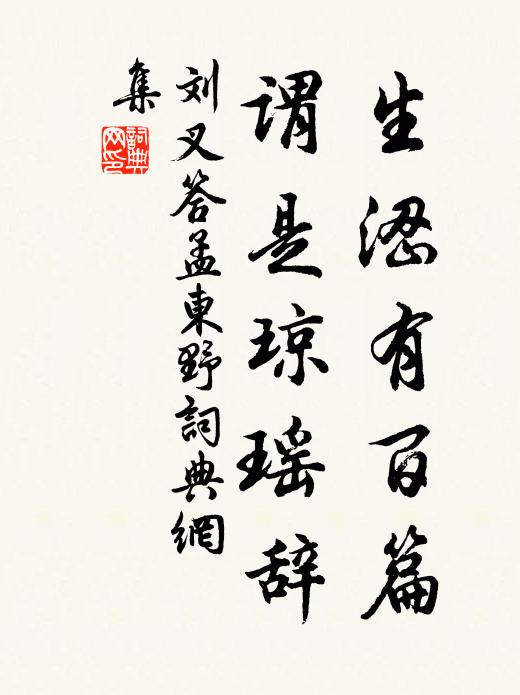 生涩有百篇
谓是琼瑶辞
刘叉答孟東野詞典網
集
詞典
网印